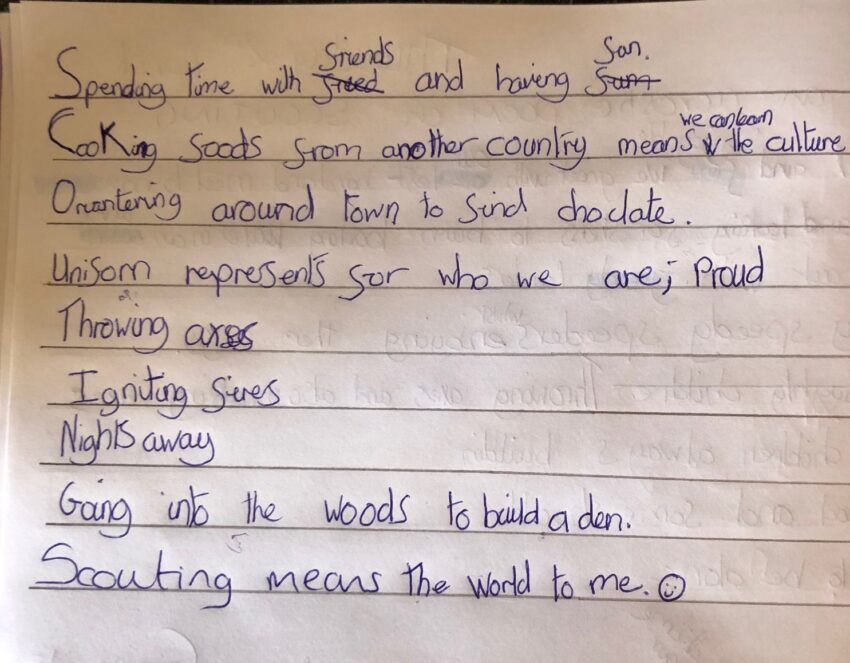 Spending time with friends and having fun.
Cooking foods from another country means we can learn the culture
Orantering around town to find choclate.
Uniform represents for who we are; Proud
Throwing axes
Igniting fires
Nights away
Going into the woods to build a den.
Scouting means the world to me. ☺